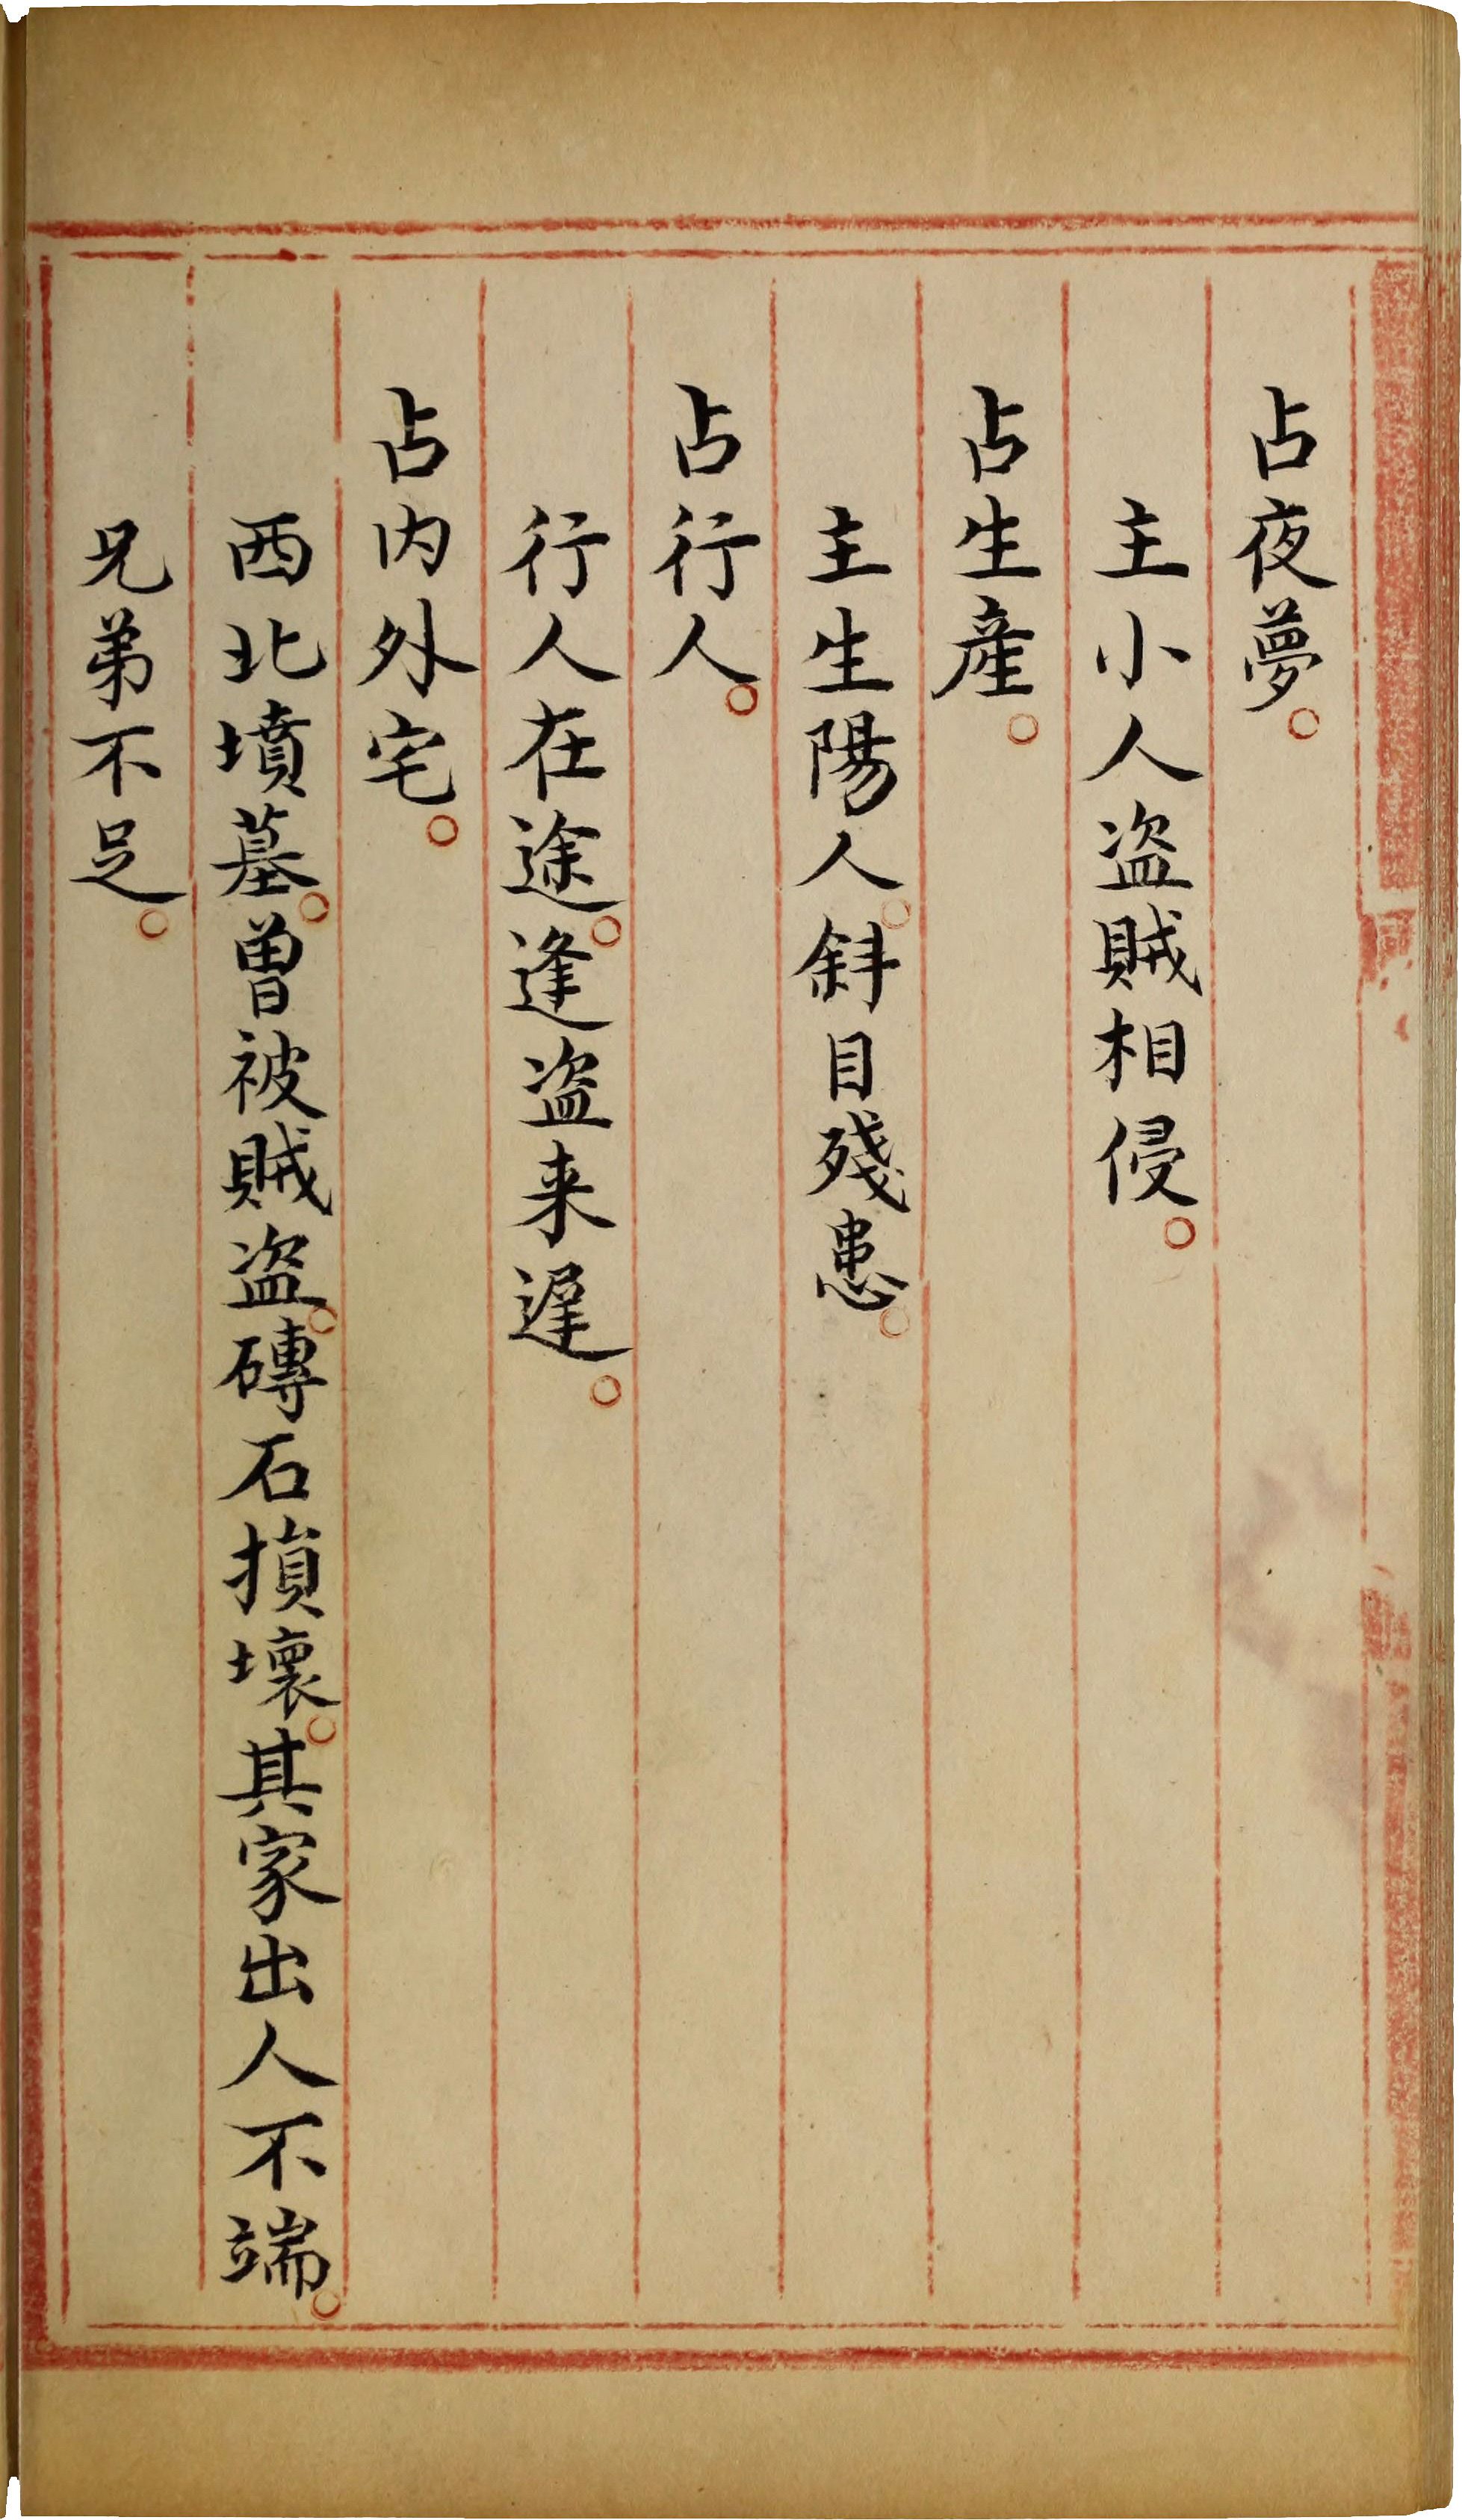 占夜夢。
主小人盗賊相侵。
占生產。
主生陽人。斜目殘患。
占行人。
行人在途。逢盗来遲。
占内外宅。
西北墳墓。曽被賊盗。磚石損壞。其家出人不端。
兄弟不足。